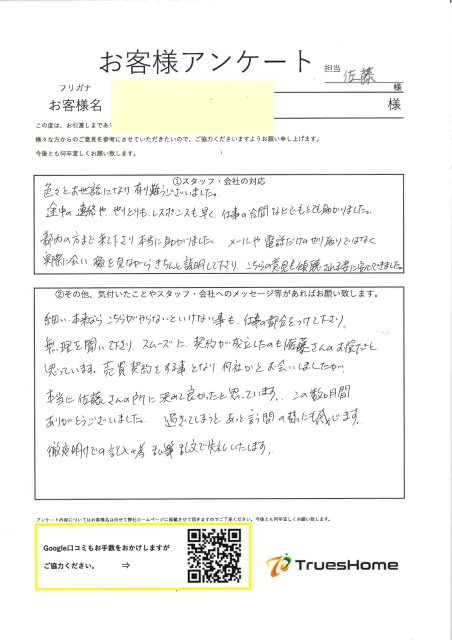 お客様アンケート 担当 佐藤
フリガナ 様
お客様名 様
この度は、お引渡しまであり
様々な方からのご意見を参考にさせていただきたいので、ご協力くださいますようお願い申し上げます。
今後とも何卒宜しくお願い致します。
①スタッフ・会社の対応
色々とお世話になり有り難うございました。
途中の連絡や、やりとりも、レスポンスも早く、仕事の合間などでもとても助かりました。
都内の方まで来て下さり本当に助かりました。 メールや電話だけのやり取りではなく
実際に会い、顔を見ながらきちんと説明して下さり、こちらの意見も傾聴される姿に安心できました。
②その他、気付いたことやスタッフ・会社へのメッセージ等があればお願い致します。
細い、本来ならこちらがやらないといけない事も、仕事の都合をつけて下さり、
無理を聞いて下さり、スムーズに、契約が成立したのも佐藤さんのお陰だと
思っています。売買契約をする事となり何社かとお会いしましたが、
本当に佐藤さんの所に決めて良かったと思っています。この数ヶ月間
ありがとうございました。 過ぎてしまうとあっと言う間の様にも感じます。
徹夜明けでの記入の為、乱筆乱文で失礼いたします。
アンケート内容についてはお客様名は伏せて弊社ホームページに掲載させて頂きますのでご了承ください。今後とも何卒宜しくお願い致します。
Google口コミもお手数をおかけしますが
ご協力ください。 ⇒
TruesHome